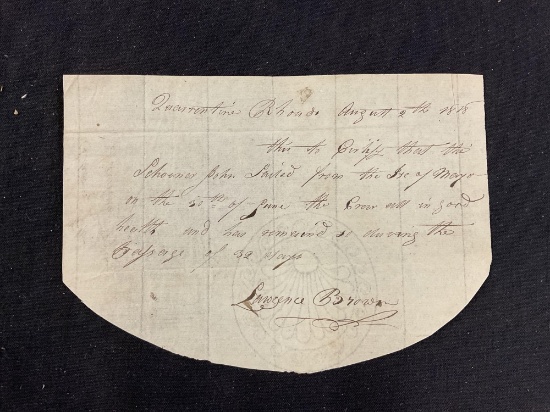 Quarentine Rhoads August 2th 1818
this to Certify that the
Schooner John Sailed from the Ise of Mayo
on the 30th of June the Crew all in good
health and has remained so during the
Passage of 32 days
Lawrence Brown